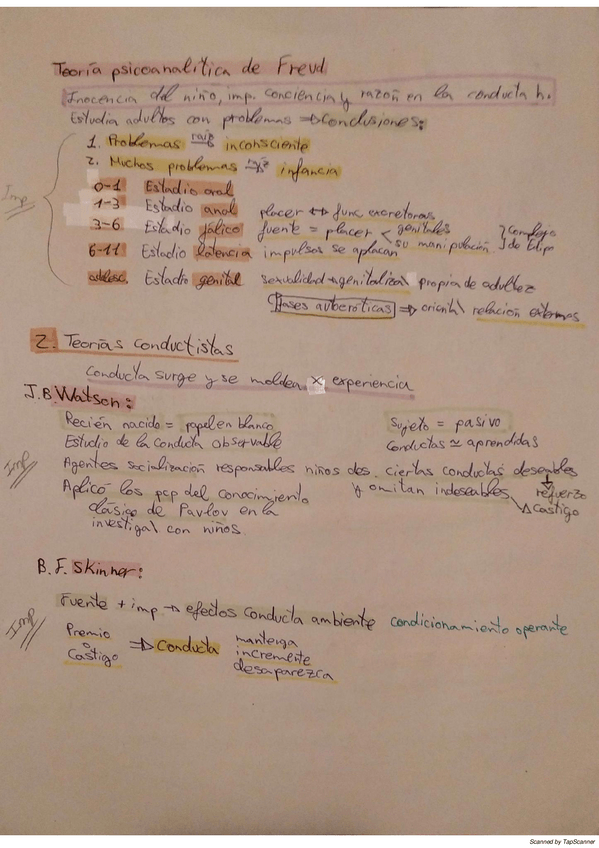 Teoría psicoanalítica de Freud
Inocencia del niño, imp. conciencia y razón en la conducta h.
Estudia adultos con problemas ⇒ Conclusiones:
1. Problemas raíz→ inconsciente
2. Muchos problemas raíz→ infancia
Imp
0-1 Estadio oral
1-3 Estadio anal placer ↔ func. excretoras
3-6 Estadio fálico fuente = placer < genitales
su manipulación } Complejo de Edipo
6-11 Estadio latencia impulsos se aplacan
adolesc. Estadio genital sexualidad → genitaliza\ propia de adultez
Fases autoeróticas ⇒ orienta\ relación externas
2. Teorías conductistas
Conducta surge y se moldea x experiencia
J.B. Watson:
Recién nacido = papel en blanco Sujeto = pasivo
Estudio de la conducta observable Conductas ≃ aprendidas
Imp
Agentes socialización responsables niños des. ciertas conductas deseables
y omitan indeseables
refuerzo
castigo
Aplicó los pcp del conocimiento
clásico de Pavlov en la
investiga\ con niños.
B.F. Skinner:
Imp
Fuente + imp → efectos conducta ambiente condicionamiento operante
Premio
o
Castigo
⇒ Conducta
mantenga
incremente
desaparezca
Scanned by TapScanner